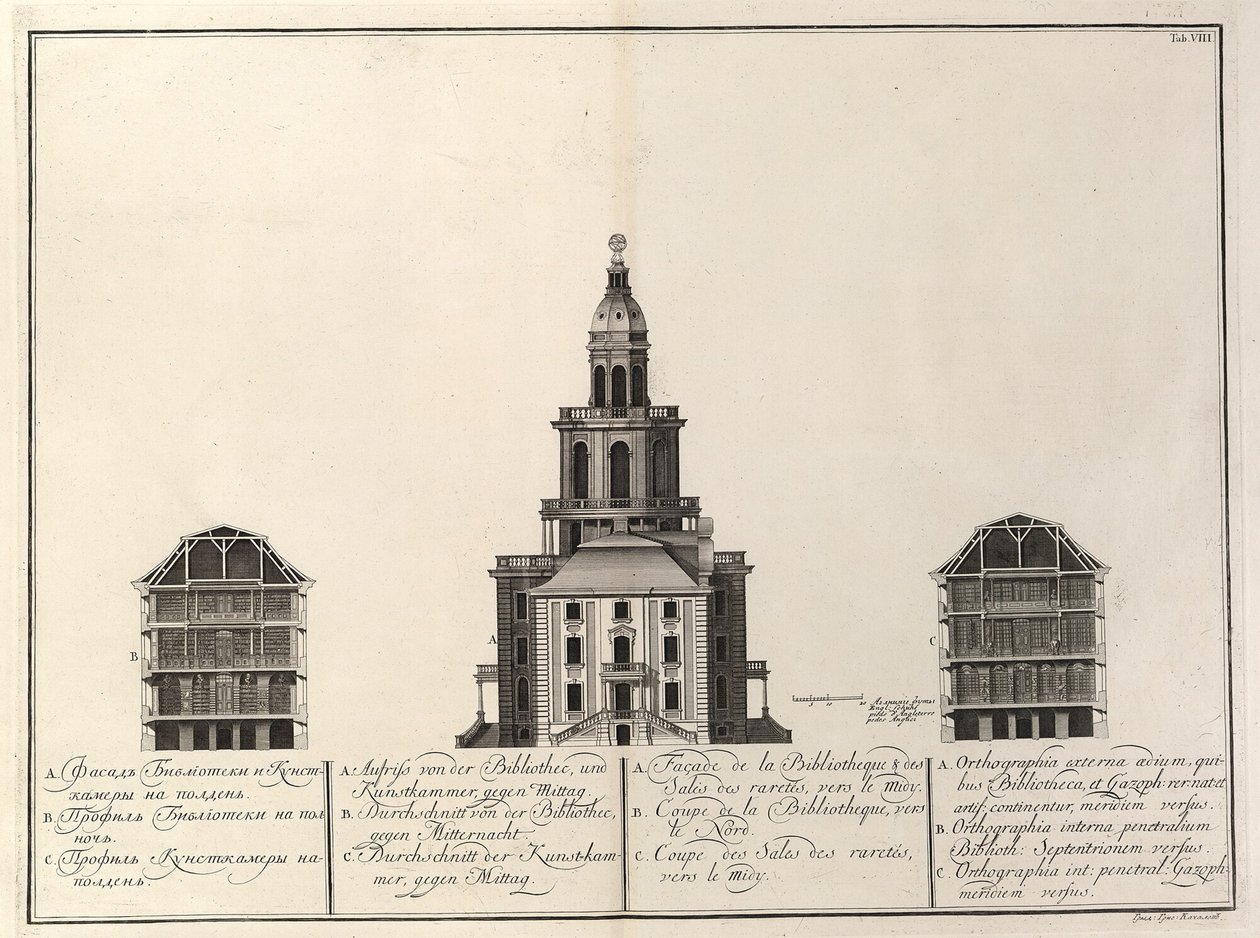 Tab. VIII.
A
B
C
5 10 20
Аглинскiе футы
Engl: Schuhe
pieds d'Angleterre
pedes Anglici
A. Фасадъ Библiотеки и Кунст-
камеры на полдень.
B. Профиль Библiотеки на пол
ночь.
C. Профиль Кунсткамеры на-
полдень.
A. Aufriss von der Bibliothec, und
Kunstkammer, gegen Mittag.
B. Durchschnitt von der Bibliothec,
gegen Mitternacht.
C. Durchschnitt der Kunst-kam-
mer, gegen Mittag.
A. Façade de la Bibliotheque & des
Sales des raretés, vers le midy.
B. Coupe de la Bibliotheque, vers
le Nord.
C. Coupe des Sales des raretés,
vers le midy.
A. Orthographia externa ædium, qui-
bus Bibliotheca, et Gazoph: rer: nat: et
artif: continentur, meridiem versus.
B. Orthographia interna penetralium
Biblioth: Septentrionem versus.
C. Orthographia int: penetral: Gazoph:
meridiem versus.
Грид: Григ: Качаловъ.